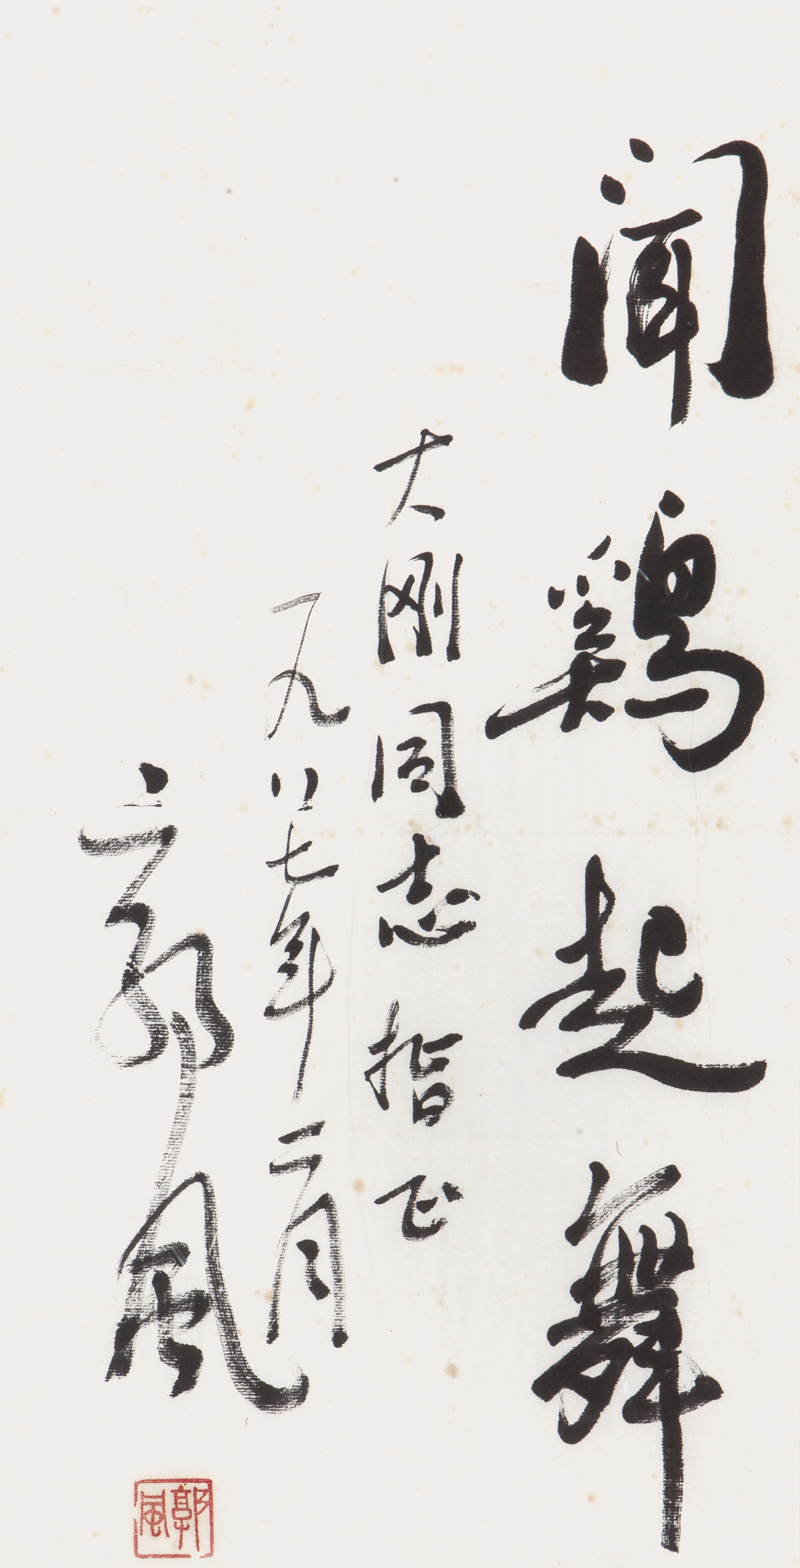 闻鸡起舞
大刚同志 指正
一九八七年二月
郭风
郭風